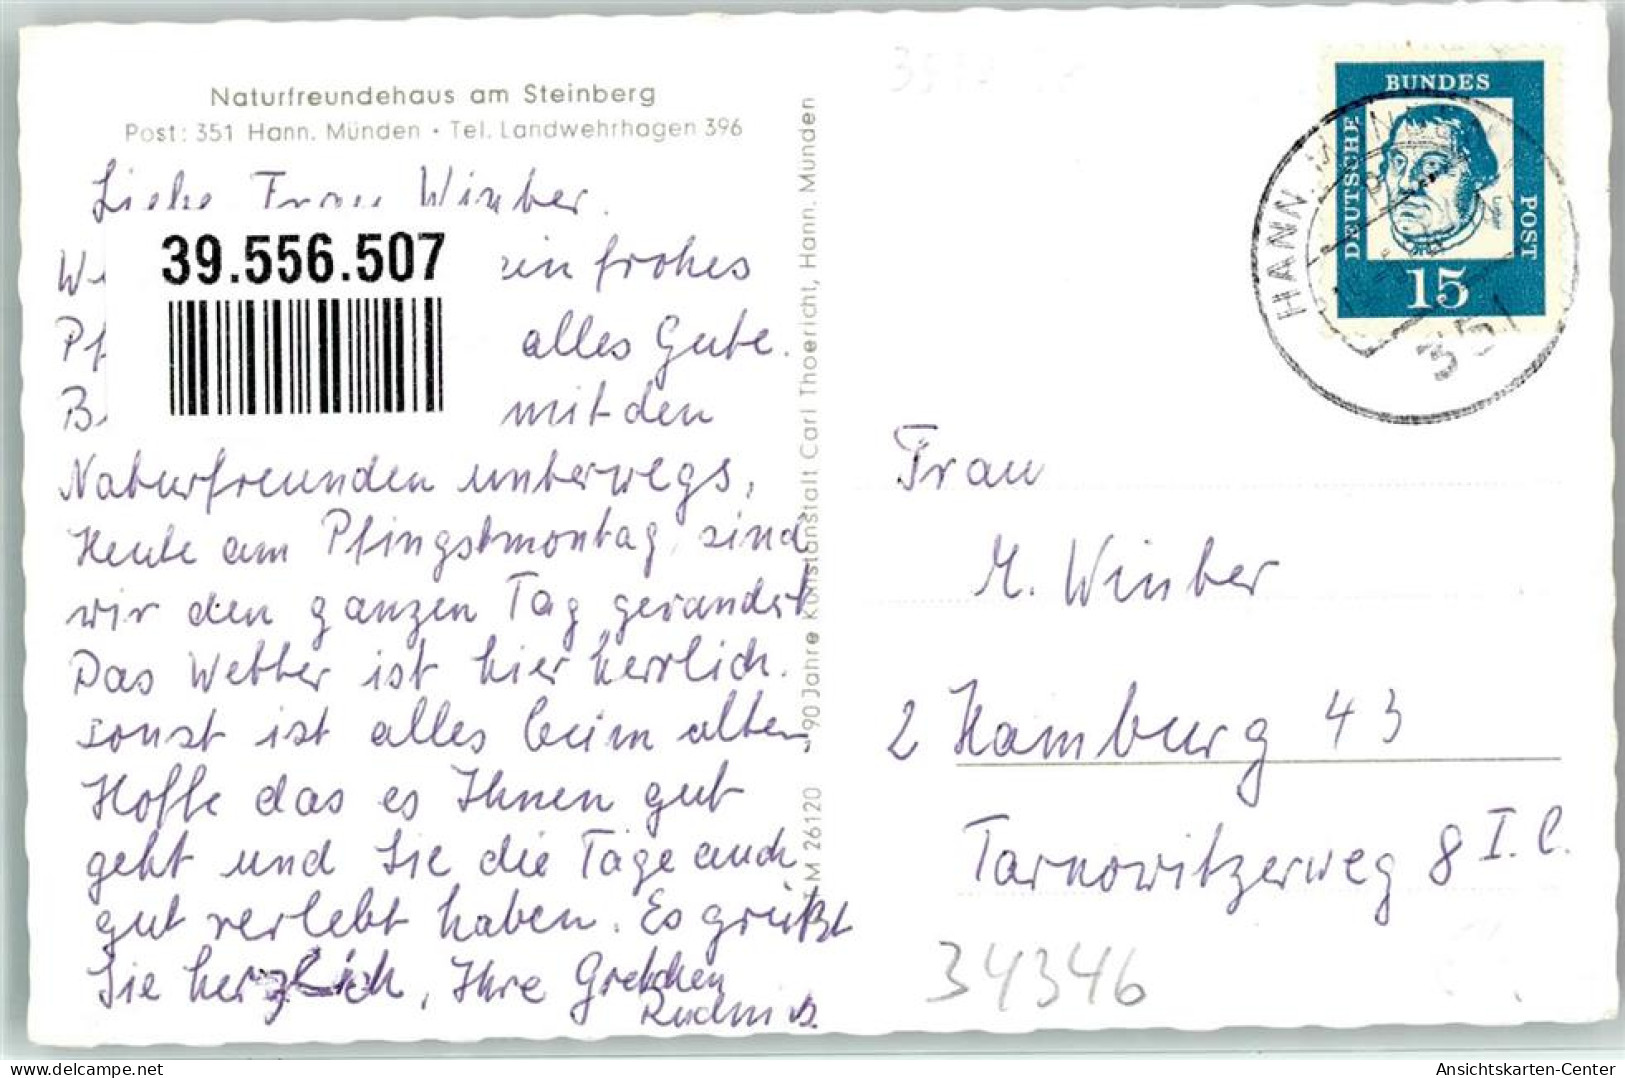 Naturfreundehaus am Steinberg
Post: 351 Hann. Münden · Tel. Landwehrhagen 396
Liebe Frau Winber.
ein frohes
alles Gute.
mit den
Naturfreunden unterwegs,
Heute am Pfingstmontag sind
wir den ganzen Tag gewandert
Das Wetter ist hier herrlich.
sonst ist alles beim alten
Hoffe das es Ihnen gut
geht und Sie die Tage auch
gut verlebt haben. Es grüßt
Sie herzlich, Ihre Gretchen
39.556.507
M 26120
90 Jahre Kunstanstalt Carl Thoericht, Hann. Münden
BUNDES
DEUTSCHE
POST
Luther
15
HANN. MÜNDEN
351
Frau
M. Winber
2 Hamburg 43
Tarnowitzerweg 8 I. l.
34346
Ansichtskarten-Center